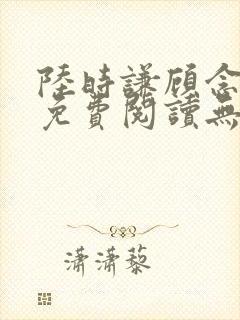 陸時謙顾念
免費閱讀無
瀟瀟藜